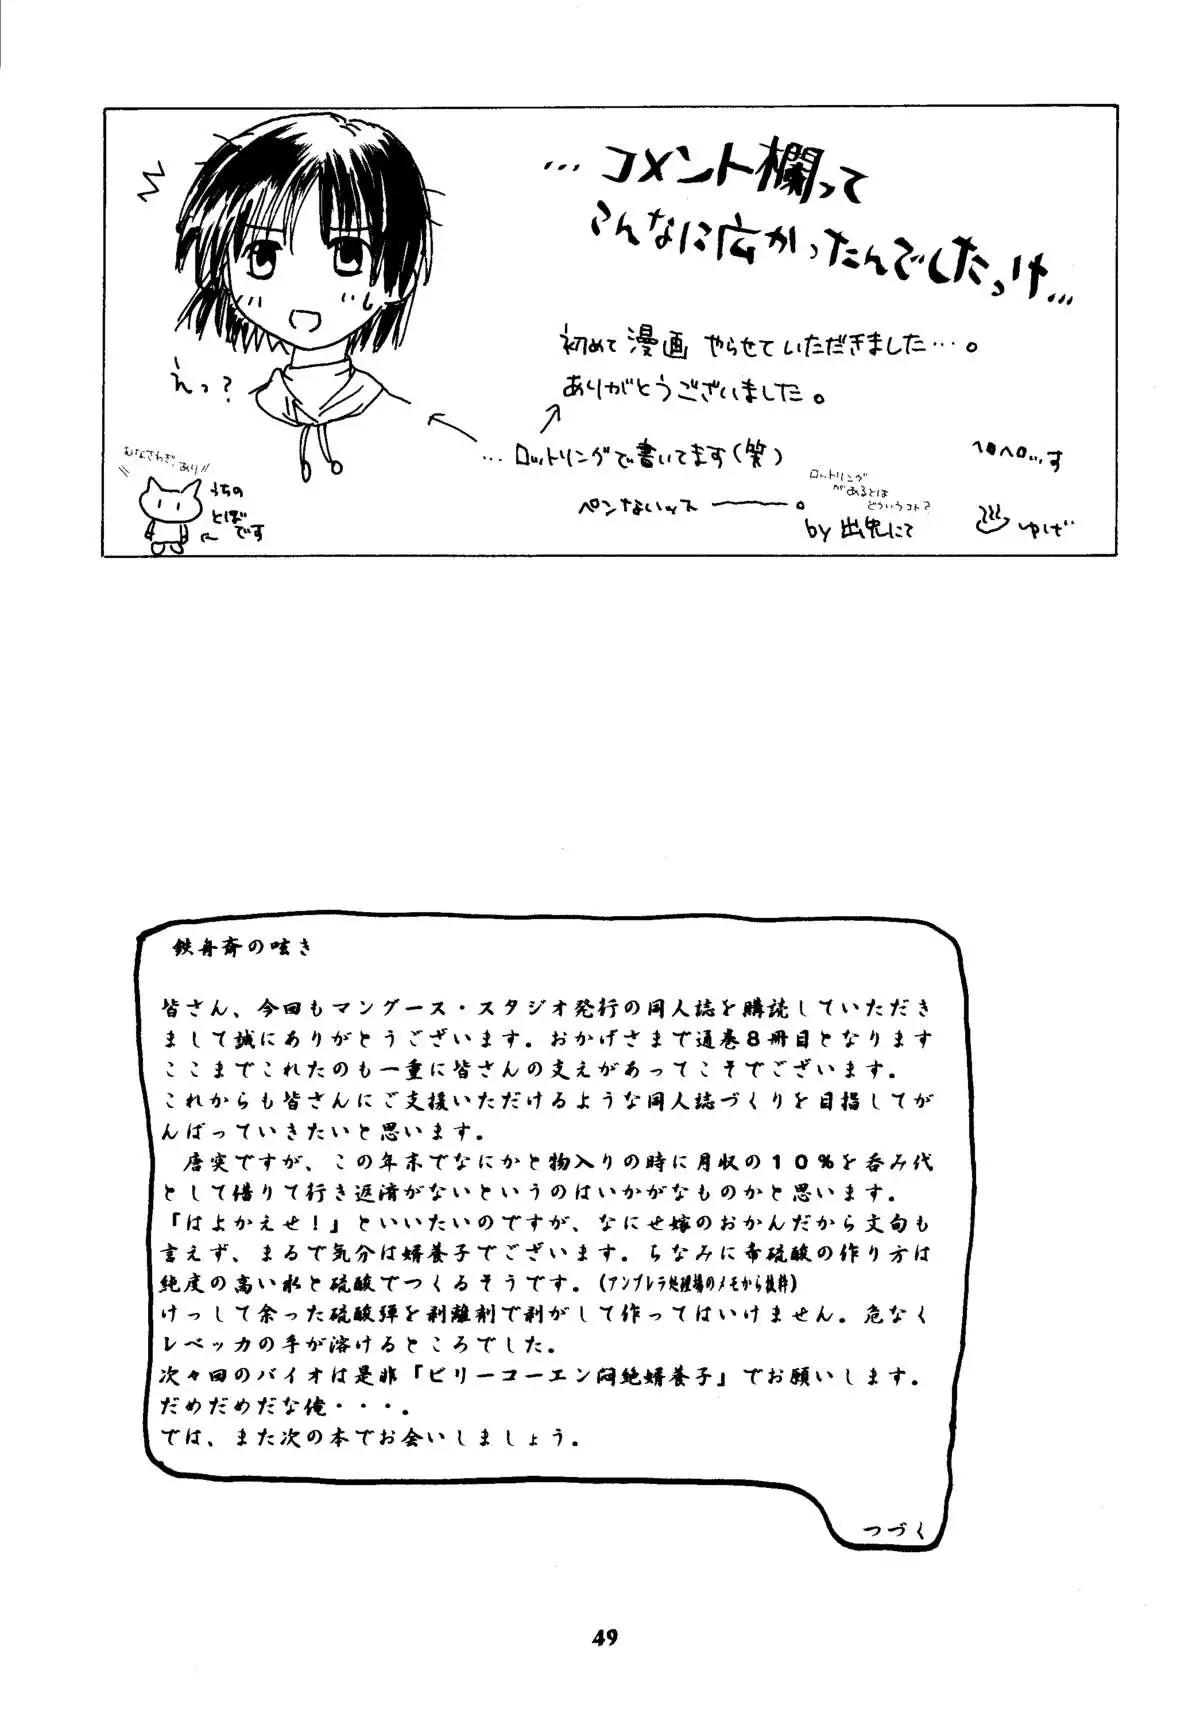 …コメント欄って
こんなに広かったんでしたっけ…
初めて漫画やらせていただきました…。
ありがとうございました。
えっ?
…ロットリングで書いてます(笑)
ペンないッス――。
ロットリング
があるとは
どういうコト?
by 出先にて
ヘロヘロ…す
ゆげ
むなさわぎ、あり
うちの
とばです
鉄舟斎の呟き
皆さん、今回もマングース・スタジオ発行の同人誌を購読していただき
まして誠にありがとうございます。おかげさまで通巻8冊目となります
ここまでこれたのも一重に皆さんの支えがあってこそでございます。
これからも皆さんにご支援いただけるような同人誌づくりを目指してが
んばっていきたいと思います。
唐突ですが、この年末でなにかと物入りの時に月収の10%を呑み代
として借りて行き返済がないというのはいかがなものかと思います。
「はよかえせ!」といいたいのですが、なにせ嫁のおかんだから文句も
言えず、まるで気分は婿養子でございます。ちなみに希硫酸の作り方は
純度の高い水と硫酸でつくるそうです。(アンブレラ処理場のメモから抜粋)
けっして余った硫酸弾を剥離剤で剥がして作ってはいけません。危なく
レベッカの手が溶けるところでした。
次々回のバイオは是非「ビリーコーエン悶絶婿養子」でお願いします。
だめだめだな俺・・・.
では、また次の本でお会いしましょう。
つづく
49